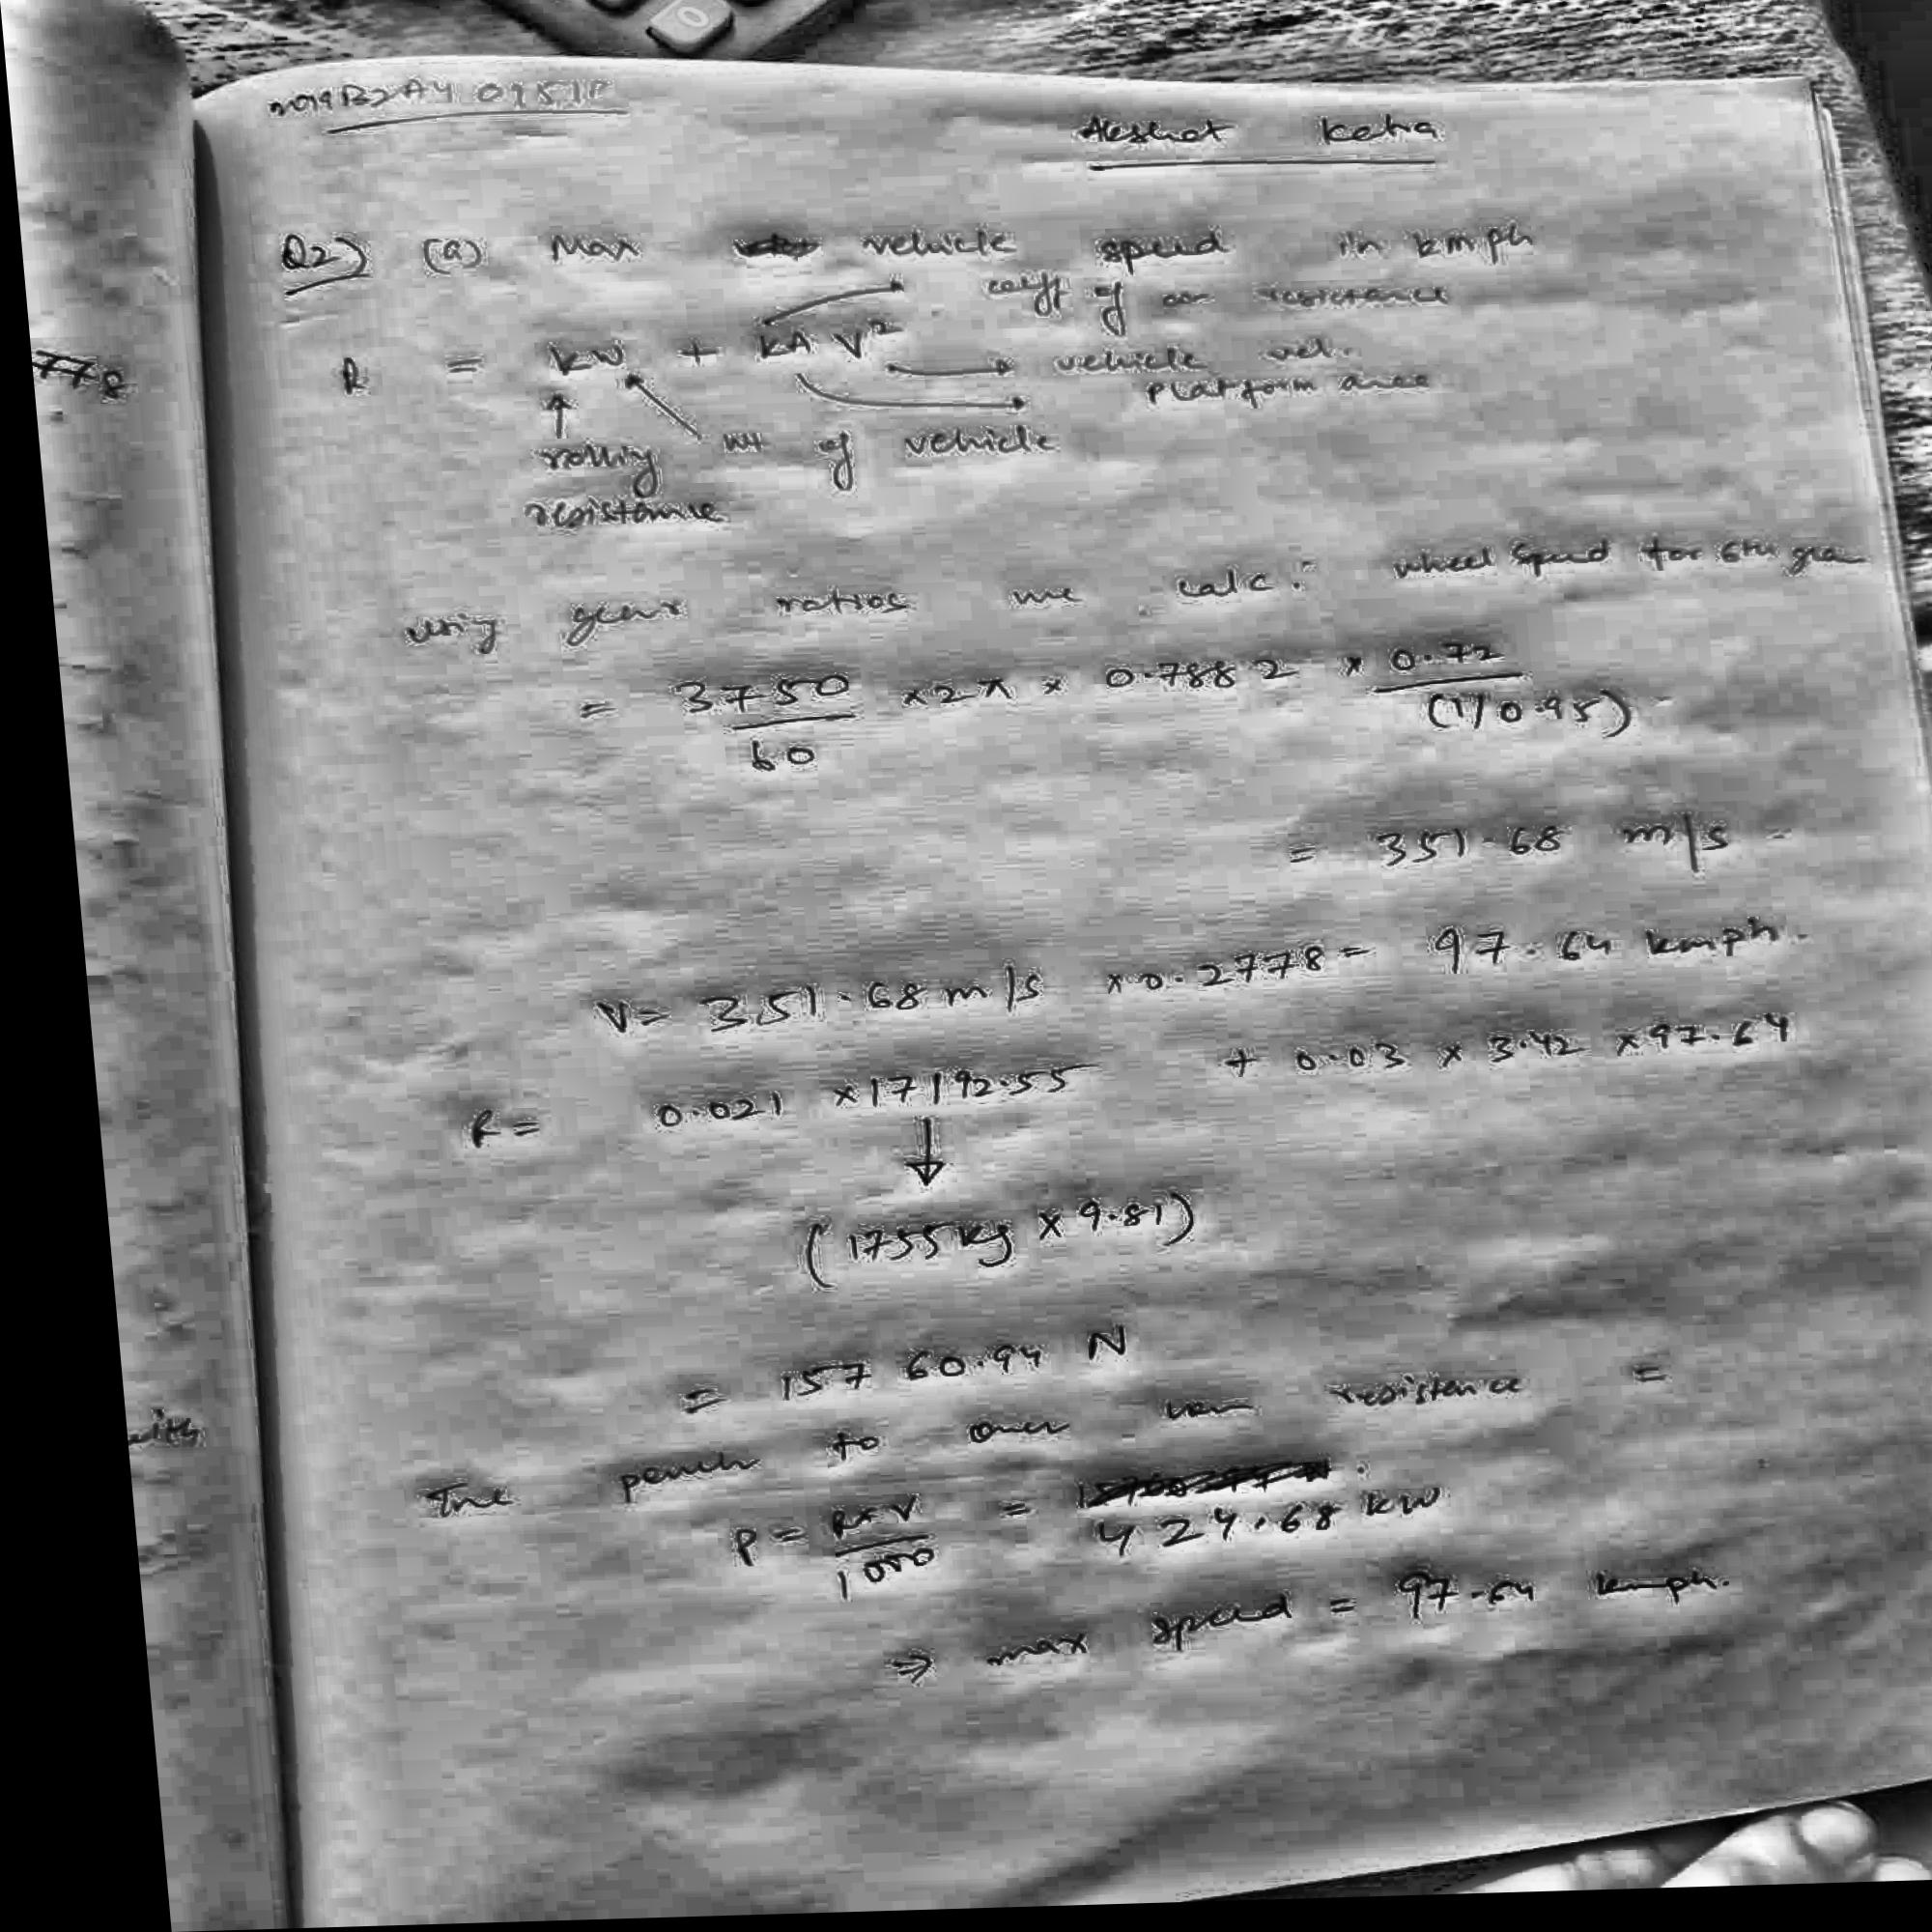 2019B2A4 0951P
Akshat Kalra
Q2) (a) Max vehicle speed in kmph
coeff of air resistance
R = kW + kA V²
vehicle vel.
platform area
rolling wt of vehicle
resistance
using gear ratios we calc. wheel speed for 6th gear
= 3750/60 x 2π x 0.7882 x 0.72/(1/0.95)
= 351.68 m/s
V = 351.68 m/s x 0.2778 = 97.64 kmph.
R = 0.021 x 17192.55 + 0.03 x 3.42 x 97.64
(1755 kg x 9.81)
= 15760.94 N
The power to over resistance =
P = RxV/1000 = 424.68 kW
⇒ max speed = 97.64 kmph.
778
with
0